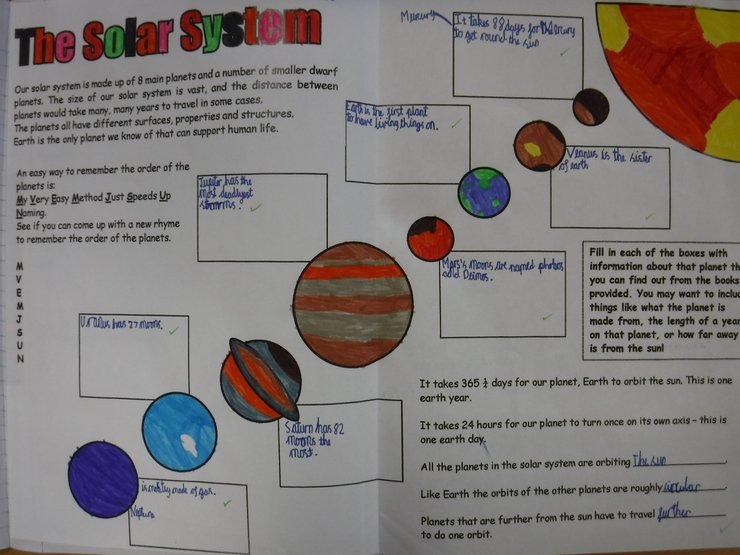 The Solar System
Our solar system is made up of 8 main planets and a number of smaller dwarf
planets. The size of our solar system is vast, and the distance between
planets would take many, many years to travel in some cases.
The planets all have different surfaces, properties and structures.
Earth is the only planet we know of that can support human life.
An easy way to remember the order of the
planets is:
My Very Easy Method Just Speeds Up
Naming.
See if you can come up with a new rhyme
to remember the order of the planets.
M
V
E
M
J
S
U
N
Mercury
It takes 88 days for
to get round the sun
Earth is the first plant
to have living things on.
Veanus is the sister
of earth
Jupiter has the
most deadlyest
storms.
Mars's moons are named phobos
and Deimos.
Uranus has 27 moons.
Saturn has 82
moons the
most.
is mostly made of gas.
Neptune
Fill in each of the boxes with
information about that planet th
you can find out from the books
provided. You may want to includ
things like what the planet is
made from, the length of a year
on that planet, or how far away
is from the sun!
It takes 365 ¼ days for our planet, Earth to orbit the sun. This is one
earth year.
It takes 24 hours for our planet to turn once on its own axis – this is
one earth day.
All the planets in the solar system are orbiting The sun.
Like Earth the orbits of the other planets are roughly circular.
Planets that are further from the sun have to travel further
to do one orbit.